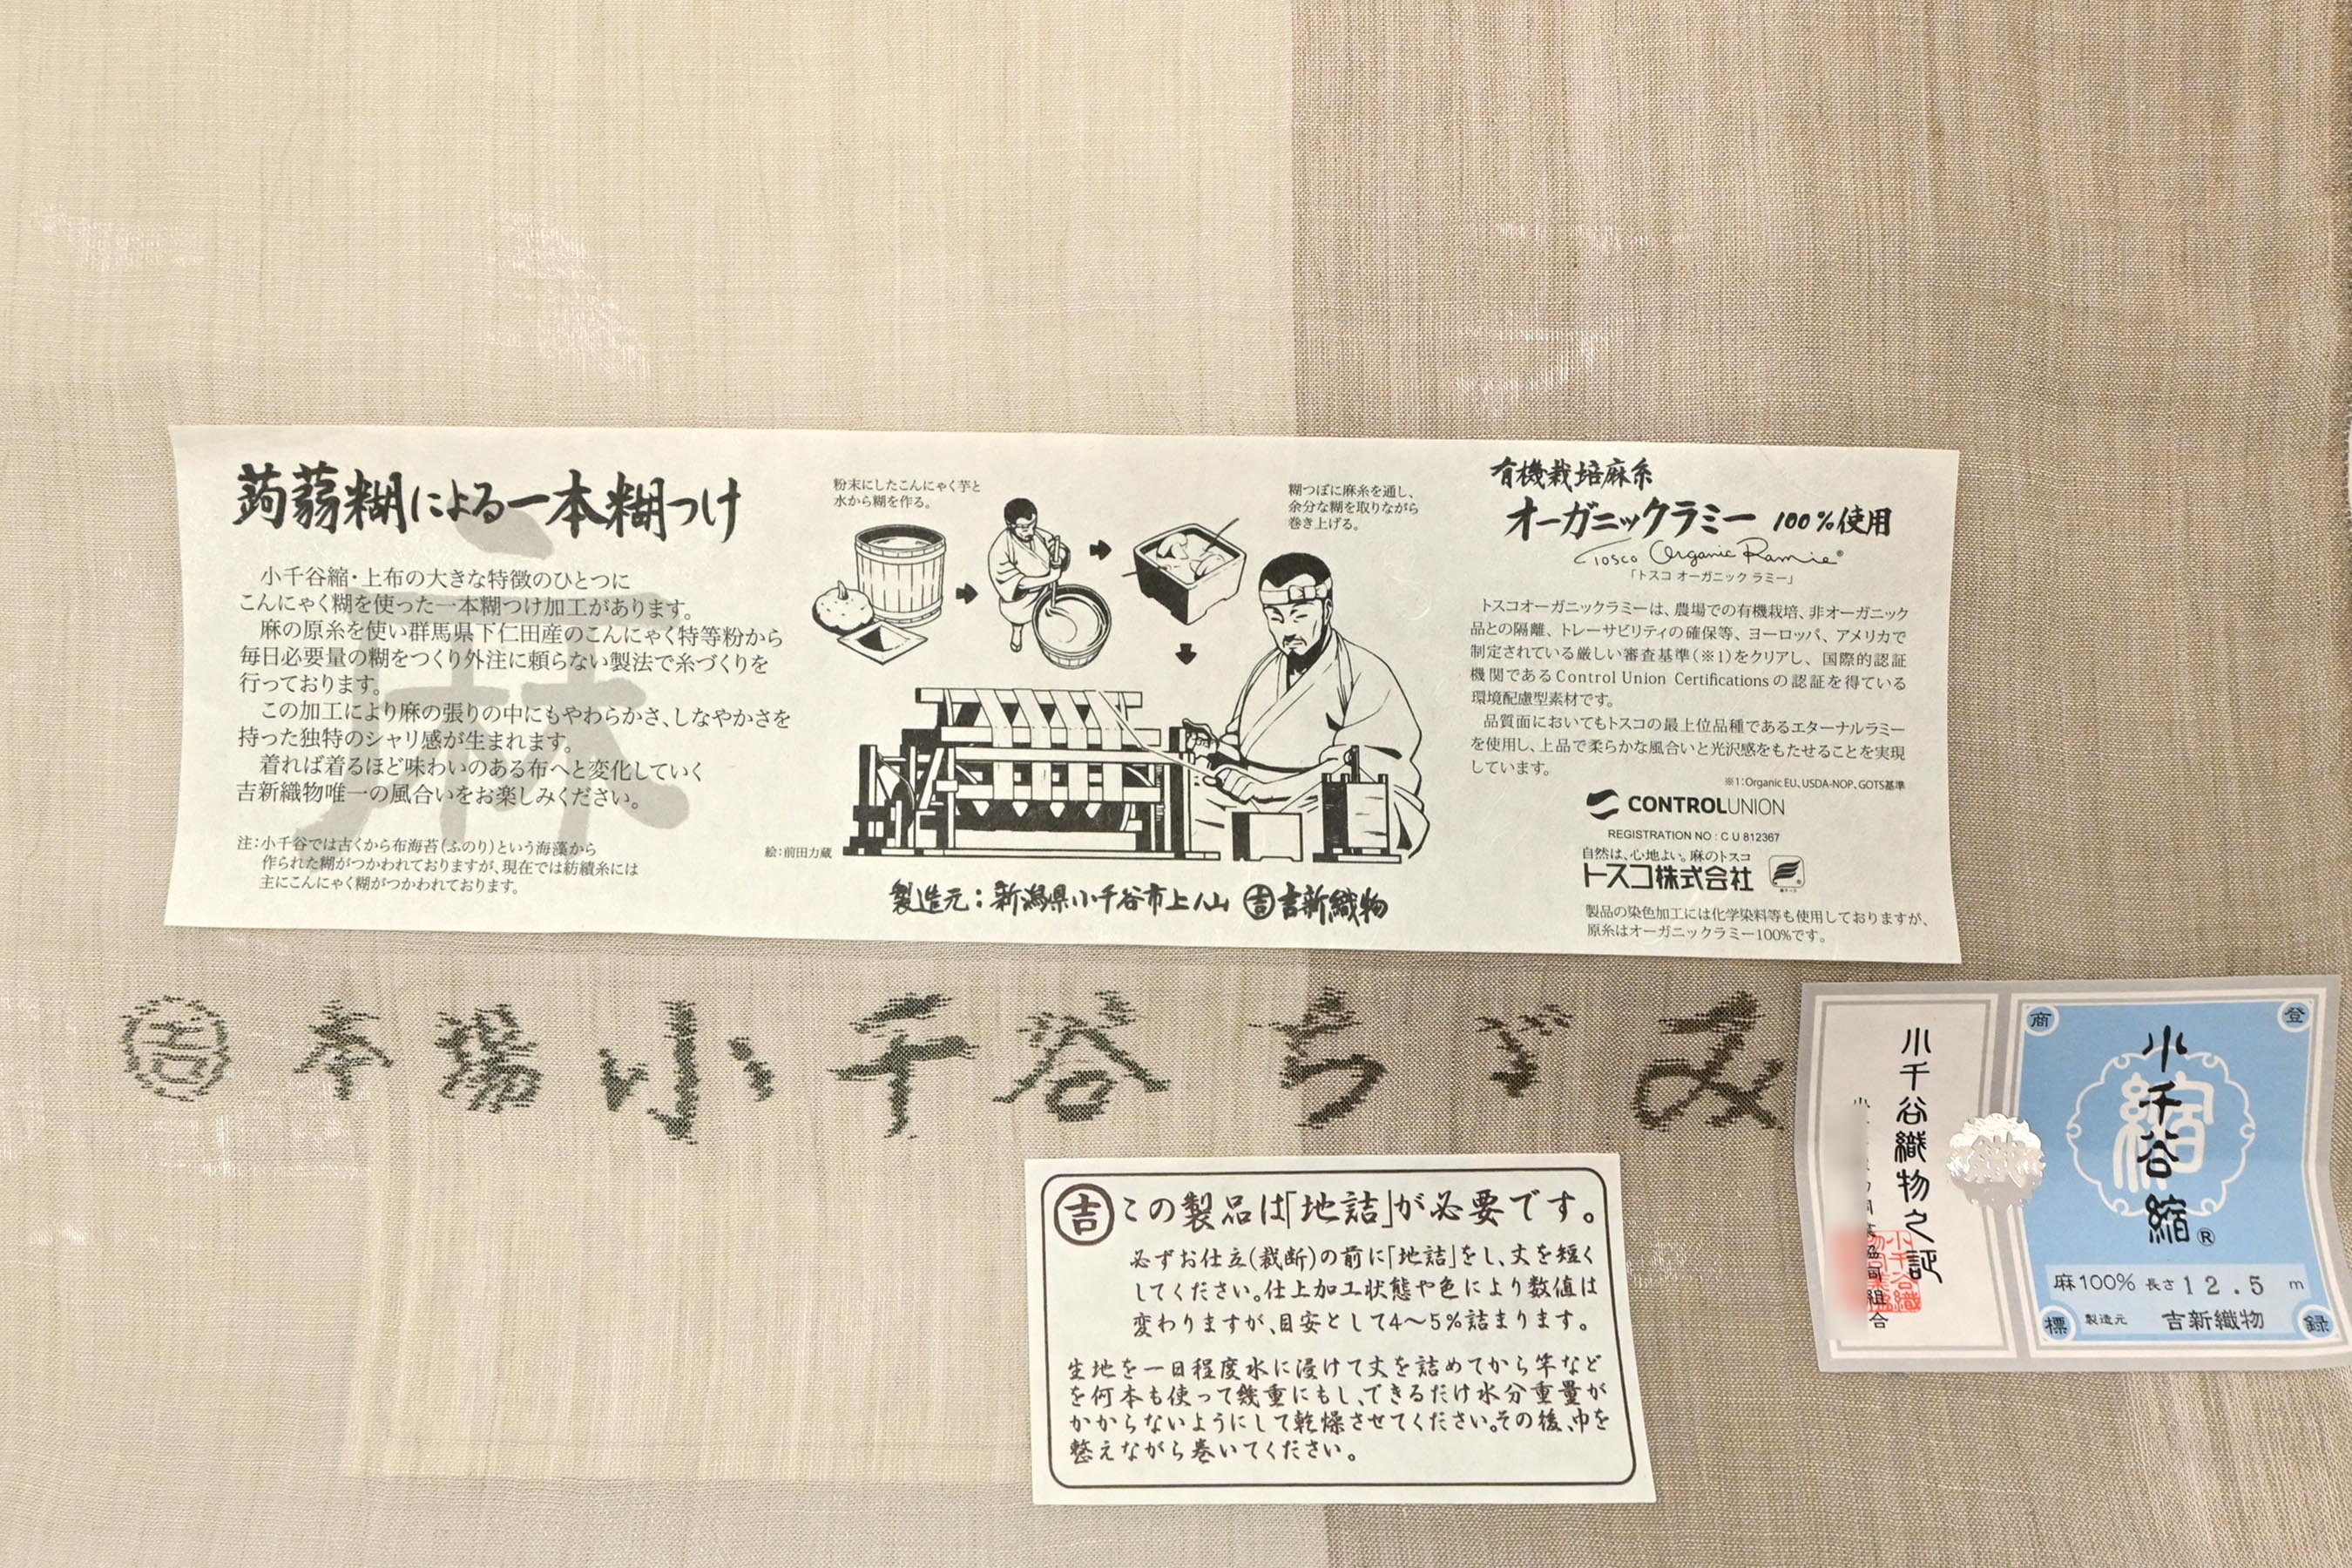 蒟蒻糊による一本糊つけ
小千谷縮・上布の大きな特徴のひとつに
こんにゃく糊を使った一本糊つけ加工があります。
麻の原糸を使い群馬県下仁田産のこんにゃく特等粉から
毎日必要量の糊をつくり外注に頼らない製法で糸づくりを
行っております。
この加工により麻の張りの中にもやわらかさ、しなやかさを
持った独特のシャリ感が生まれます。
着れば着るほど味わいのある布へと変化していく
吉新織物唯一の風合いをお楽しみください。
注:小千谷では古くから布海苔(ふのり)という海藻から
作られた糊がつかわれておりますが、現在では紡績糸には
主にこんにゃく糊がつかわれております。
麻
粉末にしたこんにゃく芋と
水から糊を作る。
糊つぼに麻糸を通し、
余分な糊を取りながら
巻き上げる。
絵:前田力蔵
製造元:新潟県小千谷市上ノ山 吉 吉新織物
有機栽培麻糸
オーガニックラミー 100%使用
Tosco Organic Ramie®
「トスコ オーガニック ラミー」
トスコオーガニックラミーは、農場での有機栽培、非オーガニック
品との隔離、トレーサビリティの確保等、ヨーロッパ、アメリカで
制定されている厳しい審査基準(※1)をクリアし、国際的認証
機関であるControl Union Certificationsの認証を得ている
環境配慮型素材です。
品質面においてもトスコの最上位品種であるエターナルラミー
を使用し、上品で柔らかな風合いと光沢感をもたせることを実現
しています。
※1:Organic EU、USDA-NOP、GOTS基準
CONTROLUNION
REGISTRATION NO : C U 812367
自然は、心地よい。麻のトスコ
トスコ株式会社
製品の染色加工には化学染料等も使用しておりますが、
原糸はオーガニックラミー100%です。
吉 本場小千谷ちゞみ
吉 この製品は「地詰」が必要です。
必ずお仕立(裁断)の前に「地詰」をし、丈を短く
してください。仕上加工状態や色により数値は
変わりますが、目安として4〜5%詰まります。
生地を一日程度水に浸けて丈を詰めてから竿など
を何本も使って幾重にもし、できるだけ水分重量が
かからないようにして乾燥させてください。その後、巾を
整えながら巻いてください。
小千谷織物之証
組合
小千谷織
商
登
縮
小千谷縮®
麻100% 長さ12.5m
標
製造元 吉新織物
録